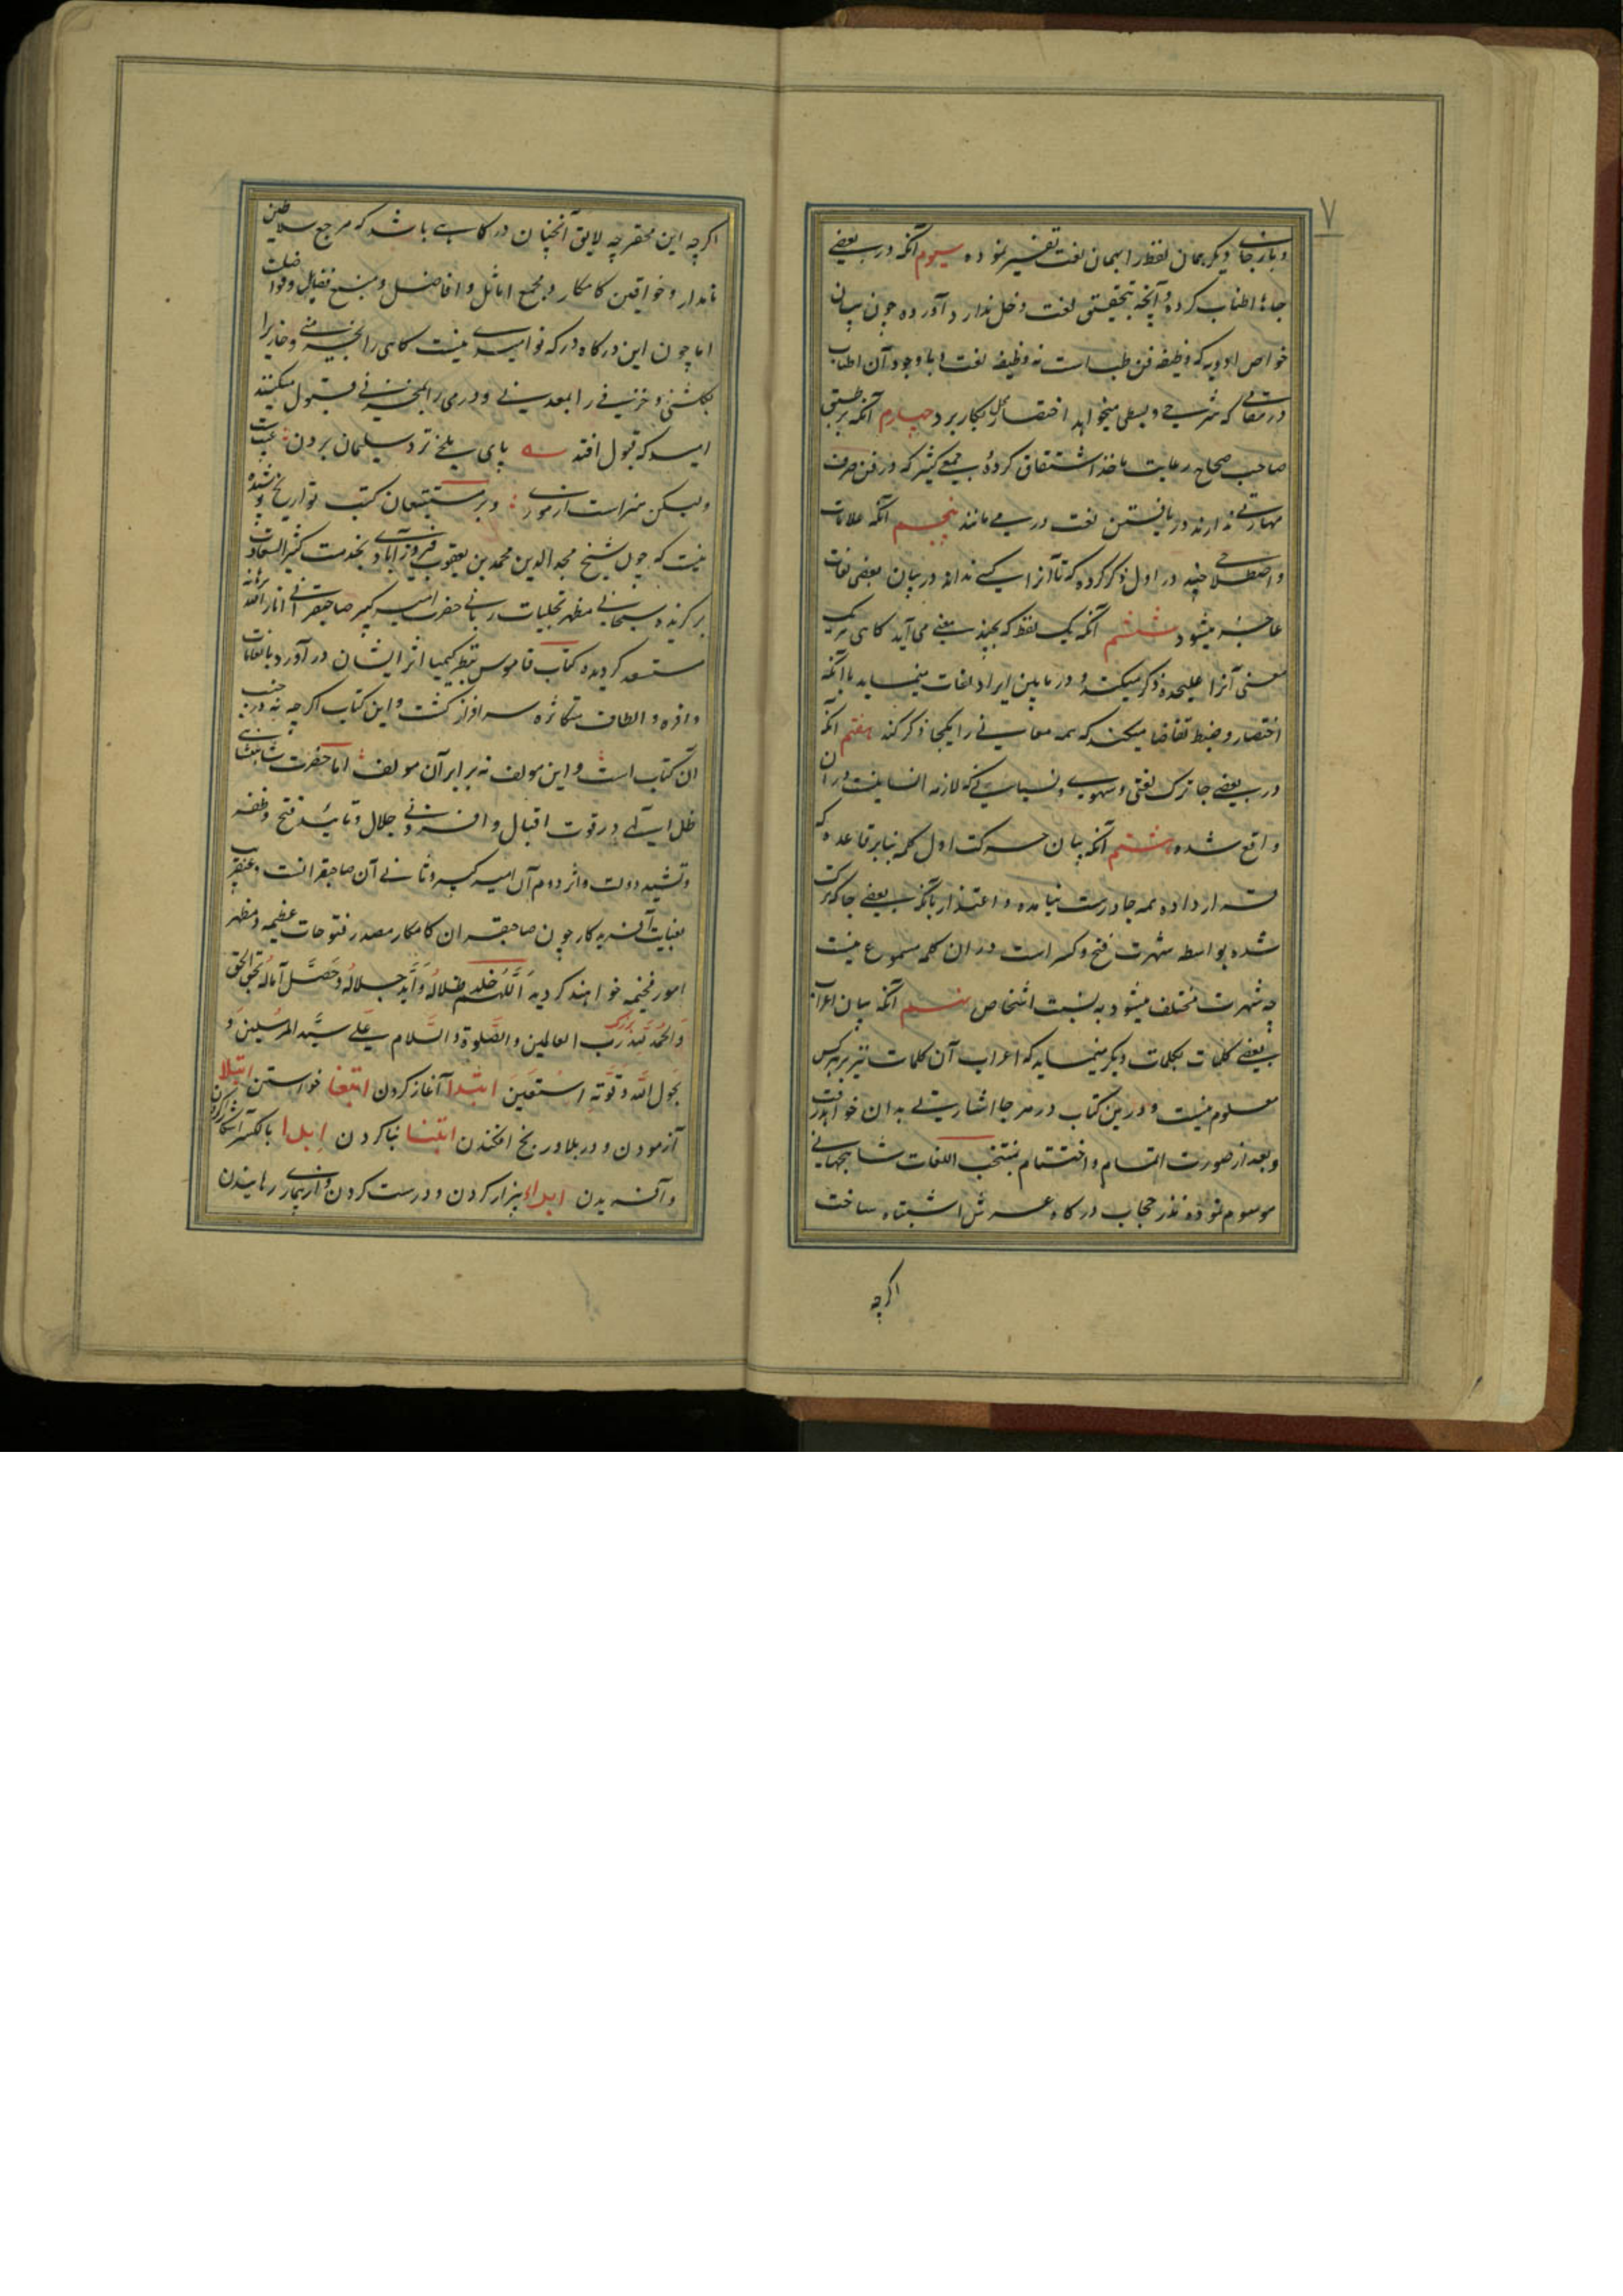 ۷
و باز جای دیگر همان لفظ را بهمان لغت تفسیر نموده سیوم آنکه در بعضی
جاها اطناب کرده و آنچه بتحقیق لغت دخل ندارد آورده چون بیان
خواص ادویه که وظیفه فن طب است نه وظیفه لغت و با وجود آن اطناب
در مقامی که شرحی و بسطی میخواهد اختصار بکار برد چهارم آنکه بر طبق
صاحب صحاح رعایت ماخذ اشتقاق کرده جمعی کثیر که در فن صرف
مهارتی ندارند در یافتن لغت در می مانند پنجم آنکه علامات
و اصطلاحی چند در اول ذکر کرده که تا آنرا کسی نداند در بیان بعضی لغات
عاجز میشود ششم آنکه یک لفظ که بچند معنی می آید گاهی هر یک
معنی آنرا علیحده ذکر میکند و در مابین ایراد لغات مینماید با آنکه
اختصار و ضبط تقاضا میکند که همه معانی را یکجا ذکر کند هفتم آنکه
در بعضی جا ترک لغتی و سهوی و نسیانی که لازمه انسانیت در آن
واقع شده هشتم آنکه بیان حرکت اول کلمه بنابر قاعده که
قرار داده همه جا درست نیامده و اعتذار بآنکه بعضی جا که ترک
شده بواسطه شهرت فتح و کسر است در ان کلمه مسموع نیست
چه شهرت مختلف میشود به نسبت اشخاص نهم آنکه بیان اعراب
بعضی کلمات بکلمات دیگر مینماید که اعراب آن کلمات نیز بر هر کس
معلوم نیست و درین کتاب در هر جا اشارتی بدان خواهد رفت
و بعد از صورت اتمام و اختتام بمنتخب اللغات شاهجهانی
موسوم نموده نذر حجاب درگاه عرش اشتباه ساخت
اگرچه
اگرچه این محقر چه لایق آنچنان درگاهی باشد که مرجع سلاطین
نامدار و خواقین کامکار و مجمع اماثل و افاضل و منبع فضایل و فواضلت
اما چون این درگاه در که نوامیدی نیست گاهی را بخرمنی و خاریرا
بگلشنی و خزفی را بمعدنی و درمی را بمخزنی قبول میکنند
امید که قبول افتد پای ملخی نزد سلیمان بردن عیبست
ولیکن هنراست از موری و بر متتبعان کتب تواریخ پوشیده
نیست که چون شیخ مجد الدین محمد بن یعقوب فیروزآبادی بخدمت کثیر السعادت
برگزیده سبحانی مظهر تجلیات ربانی حضرت امیر کبیر صاحبقرانی انار الله برهانه
مستسعد گردیده کتاب قاموس بنظر کیمیا اثر ایشان در آورد بانعامات
وافره و الطاف متکاثره سرافراز گشت و این کتاب اگرچه نه در جنب
ان کتاب است و این مولف نه برابر آن مولف اما حضرت شاهنشاهی
ظل الهی در قوت اقبال و افزونی جلال و تایید فتح و ظفر
و تشیید دولت و اثر دوم آن امیر کبیر و ثانی آن صاحبقرانست و عنقریب
بعنایت آفریدکار چون صاحبقران کامکار مصدر فتوحات عظیمه و مظهر
امور فخیمه خواهند گردید اللّهُمَّ خلد ظلالهُ و اَبَّد جلالهُ و حَصَّل آماله بحق الحق
و الحمد لله رب العالمین و الصلوة و السلام علی سید المرسلین و
بحول الله و قوته استعین ابتدا آغاز کردن ابتغا خواستن ابتلا
آزمودن و در بلا و رنج افکندن ابتنا بنا کردن ابدا بالکسر آشکارا کردن
و آفریدن ابراء بیزار کردن و درست کردن و از بیماری رهانیدن